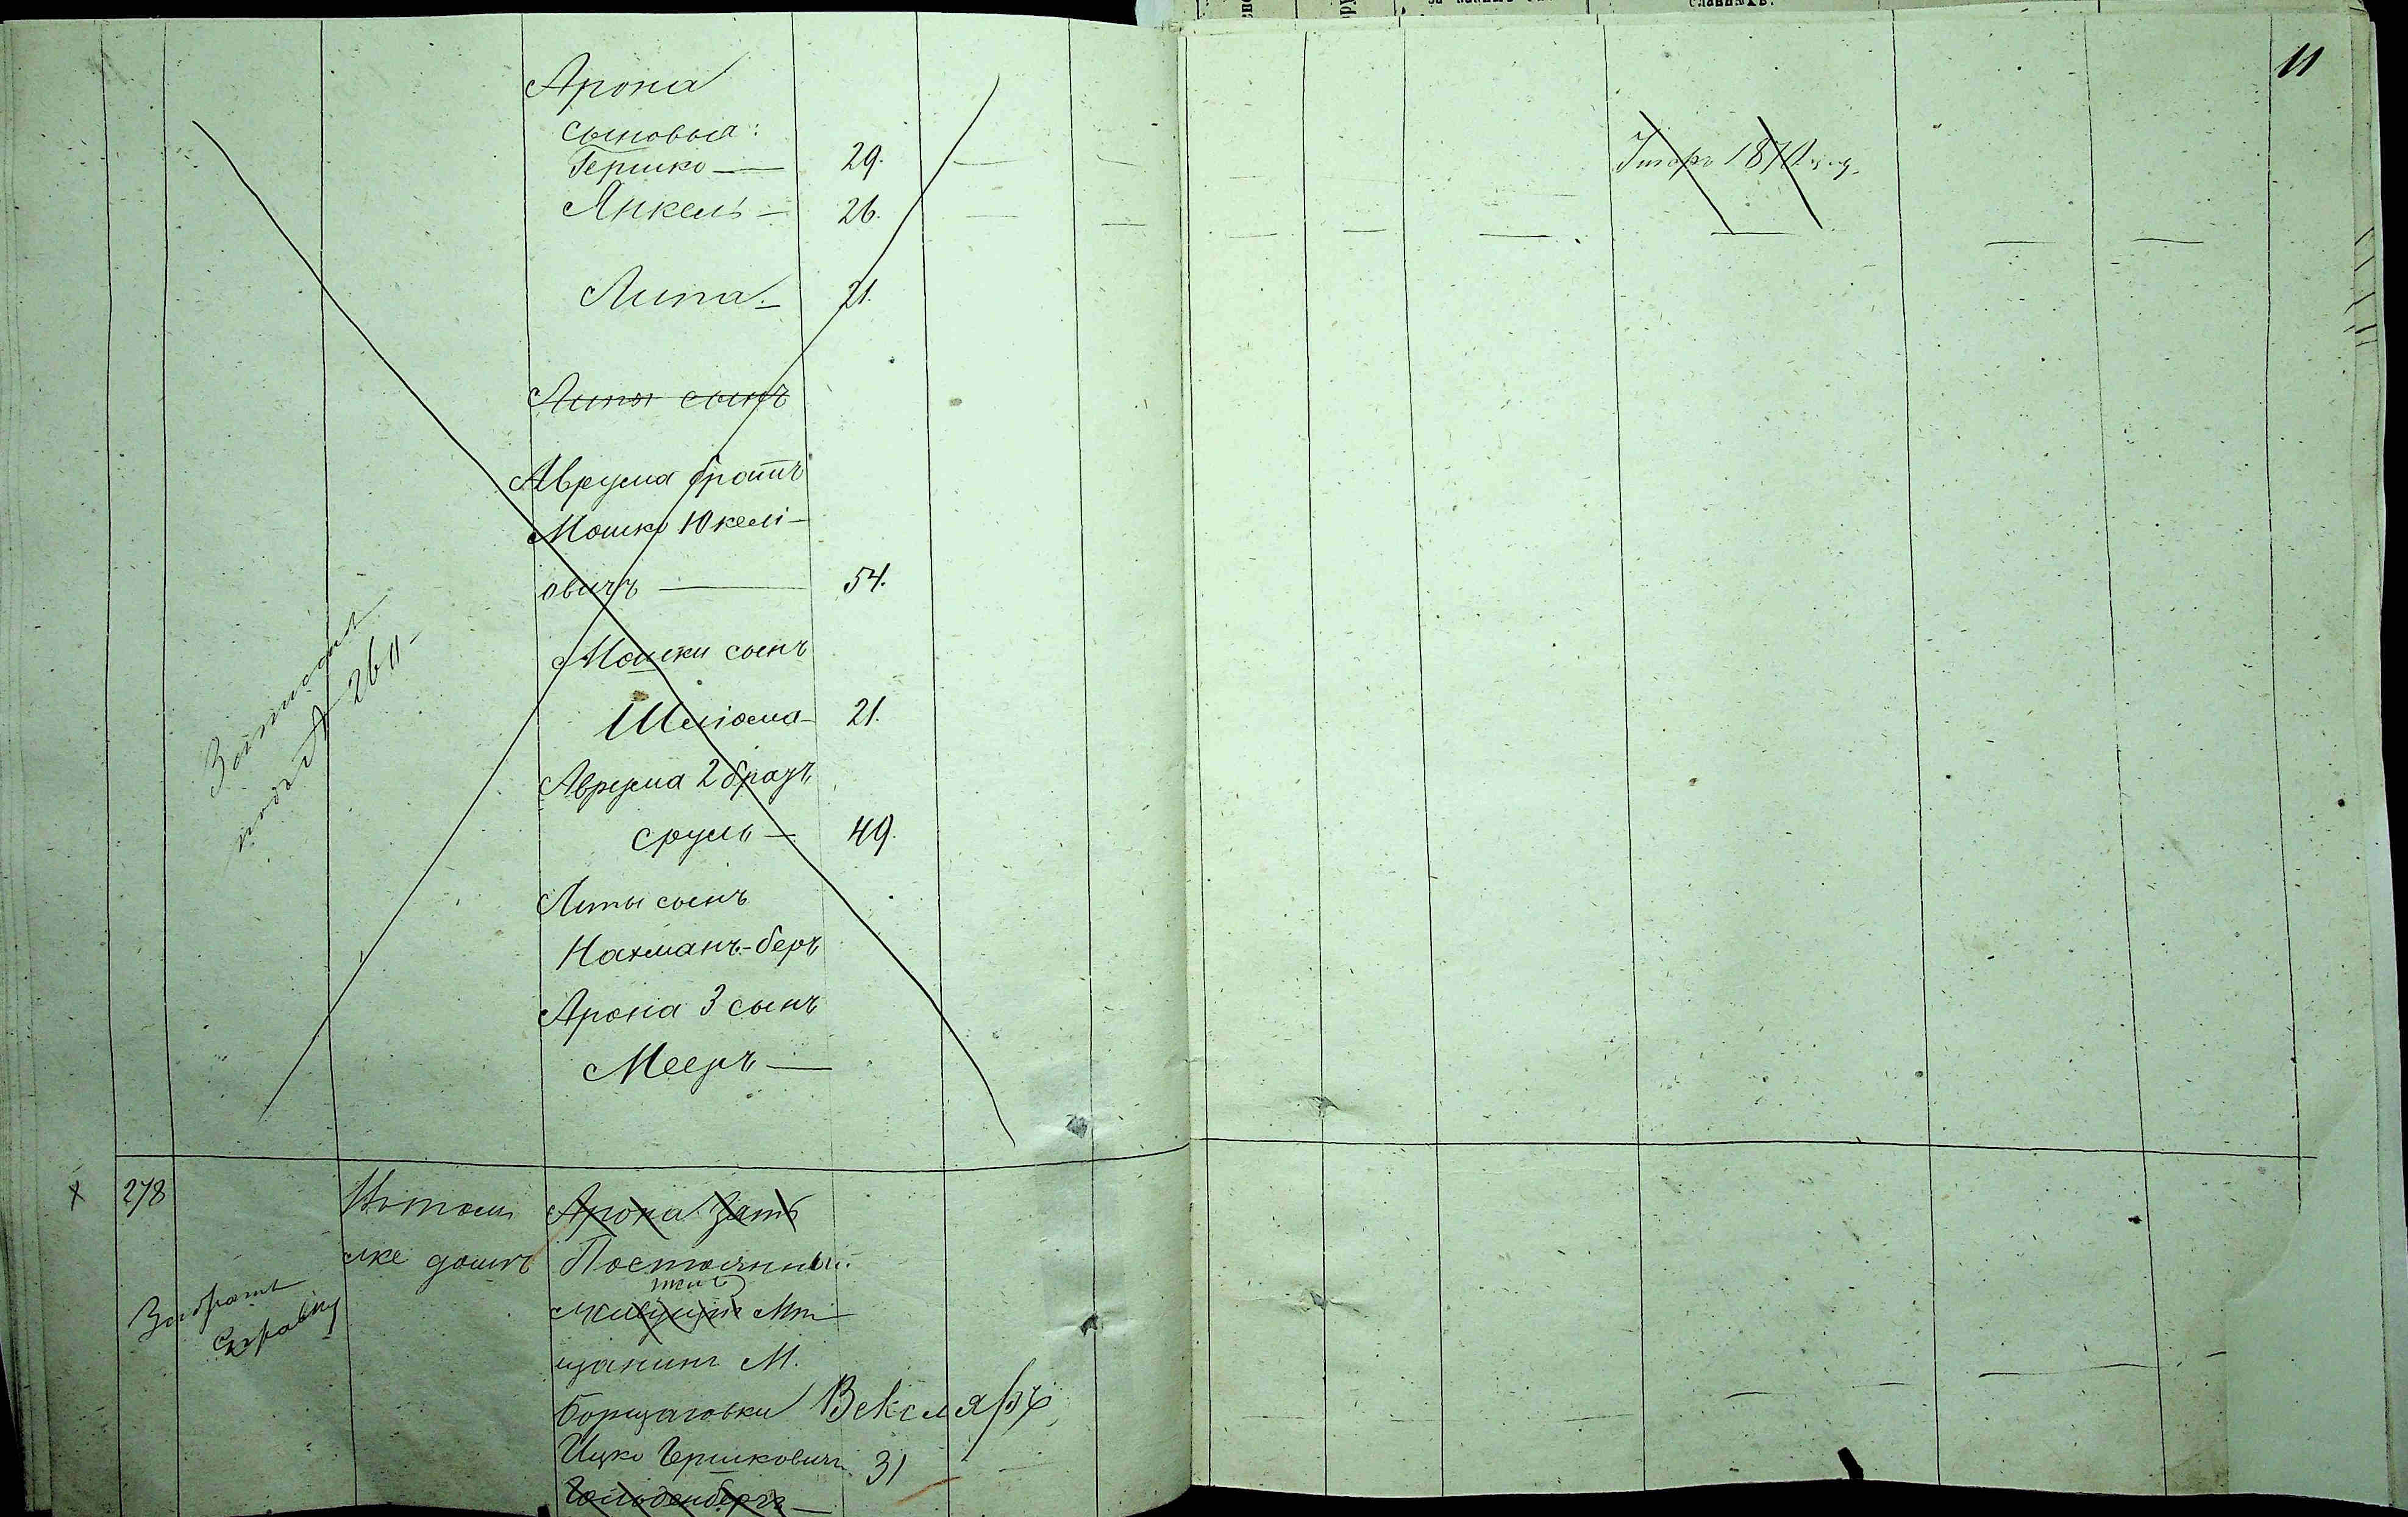 11
Арона
сыновья:
Гершко — 29.
Янкель — 26.
Липа — 21.
Липы сынъ
Аврума братъ
Мошко Юкель-
овичъ — 54.
Мошки сынъ
Шлiома — 21.
Аврума 2 братъ
Сруль — 49.
Липы сынъ
Нахманъ-беръ
Арона 3 сынъ
Мееръ —
Записанъ
подъ № 261
278
Въ томъ
же домѣ
Арона Зять
Постоянный
жит
живущій Мѣ-
щанинъ М.
Борщаговки Векслярь
Ицко Гершковичъ 31
Гольденбергъ —
Забралъ
справку